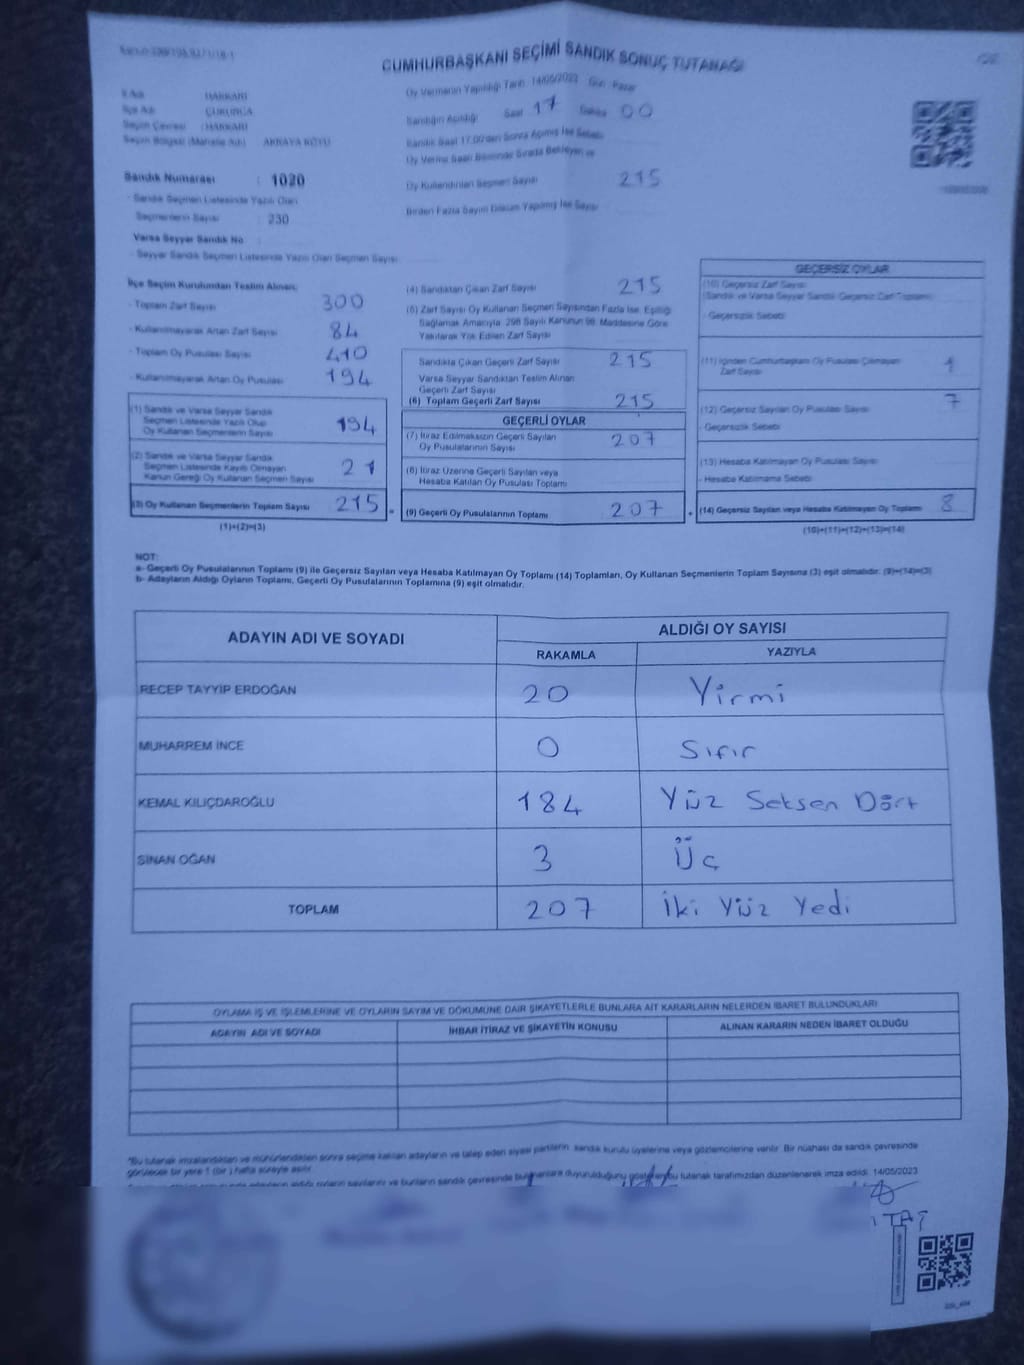 CUMHURBAŞKANI SEÇİMİ SANDIK SONUÇ TUTANAĞI
İl Adı HAKKARİ
İlçe Adı ÇUKURCA
Seçim Çevresi : HAKKARİ
Seçim Bölgesi (Mahalle Adı)
Sandık Numarası : 1020
- Sandık Seçmen Listesinde Yazılı Olan
Seçmenlerin Sayısı : 230
Varsa Seyyar Sandık No
- Seyyar Sandık Seçmen Listesinde Yazılı Olan Seçmen Sayısı
Oy Vermenin Yapıldığı Tarih 14/05/2023 Gün Pazar
Sandığın Açıldığı Saat 17 Dakika 00
Sandık Saat 17.00'den Sonra Açılmış İse Sebebi
Oy Verme Saati Bitiminde Sırada Bekleyen ve
Oy Kullandırılan Seçmen Sayısı 215
Birden Fazla Sayım Döküm Yapılmış İse Sayısı
İlçe Seçim Kurulundan Teslim Alınan;
- Toplam Zarf Sayısı 300
- Kullanılmayarak Artan Zarf Sayısı 84
- Toplam Oy Pusulası Sayısı 410
- Kullanılmayarak Artan Oy Pusulası 194
(1) Sandık ve Varsa Seyyar Sandık
Seçmen Listesinde Yazılı Olup
Oy Kullanan Seçmenlerin Sayısı 194
(2) Sandık ve Varsa Seyyar Sandık
Seçmen Listesinde Kayıtlı Olmayan
Kanun Gereği Oy Kullanan Seçmen Sayısı 21
(3) Oy Kullanan Seçmenlerin Toplam Sayısı 215
(1)+(2)=(3)
(4) Sandıktan Çıkan Zarf Sayısı 215
(5) Zarf Sayısı Oy Kullanan Seçmen Sayısından Fazla İse, Eşitliği
Sağlamak Amacıyla, 298 Sayılı Kanunun 98. Maddesine Göre
Yakılarak Yok Edilen Zarf Sayısı
Sandıkta Çıkan Geçerli Zarf Sayısı 215
Varsa Seyyar Sandıktan Teslim Alınan
Geçerli Zarf Sayısı
(6) Toplam Geçerli Zarf Sayısı 215
GEÇERLİ OYLAR
(7) İtiraz Edilmeksizin Geçerli Sayılan
Oy Pusulalarının Sayısı 207
(8) İtiraz Üzerine Geçerli Sayılan veya
Hesaba Katılan Oy Pusulası Toplamı
= (9) Geçerli Oy Pusulalarının Toplamı 207
GEÇERSİZ OYLAR
(10) Geçersiz Zarf Sayısı
(Sandık ve Varsa Seyyar Sandık Geçersiz Zarf Toplamı)
- Geçersizlik Sebebi
(11) İçinden Cumhurbaşkanı Oy Pusulası Çıkmayan
Zarf Sayısı 1
(12) Geçersiz Sayılan Oy Pusulası Sayısı 7
- Geçersizlik Sebebi
(13) Hesaba Katılmayan Oy Pusulası Sayısı
- Hesaba Katılmama Sebebi
+ (14) Geçersiz Sayılan veya Hesaba Katılmayan Oy Toplamı 8
(10)+(11)+(12)+(13)=(14)
NOT:
a- Geçerli Oy Pusulalarının Toplamı (9) ile Geçersiz Sayılan veya Hesaba Katılmayan Oy Toplamı (14) Toplamları, Oy Kullanan Seçmenlerin Toplam Sayısına (3) eşit olmalıdır. (9)+(14)=(3)
b- Adayların Aldığı Oyların Toplamı, Geçerli Oy Pusulalarının Toplamına (9) eşit olmalıdır.
ADAYIN ADI VE SOYADI ALDIĞI OY SAYISI
RAKAMLA YAZIYLA
RECEP TAYYİP ERDOĞAN 20 Yirmi
MUHARREM İNCE 0 Sıfır
KEMAL KILIÇDAROĞLU 184 Yüz Seksen Dört
SİNAN OĞAN 3 Üç
TOPLAM 207 İki Yüz Yedi
OYLAMA İŞ VE İŞLEMLERİNE VE OYLARIN SAYIM VE DÖKÜMÜNE DAİR ŞİKAYETLERLE BUNLARA AİT KARARLARIN NELERDEN İBARET BULUNDUKLARI
ADAYIN ADI VE SOYADI İHBAR İTİRAZ VE ŞİKAYETİN KONUSU ALINAN KARARIN NEDEN İBARET OLDUĞU
*Bu tutanak imzalandıktan ve mühürlendikten sonra seçime katılan adayların ve talep eden siyasi partilerin sandık kurulu üyelerine veya gözlemcilerine verilir. Bir nüshası da sandık çevresinde
görülecek bir yere 1 (bir) hafta süreyle asılır.
adayların aldığı oyların sayılarını ve bunların sandık çevresinde bulunanlara duyurulduğunu gösteren bu tutanak tarafımızdan düzenlenerek imza edildi. 14/05/2023